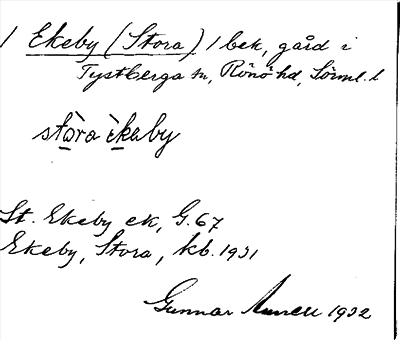 1 Ekeby (Stora) 1 bek, gård i
Tystberga sn, Rönö hd, Sörml. l
stòra èkeby
St. Ekeby ek, G. 67
Ekeby, Stora, kb. 1931
Gunnar 1932